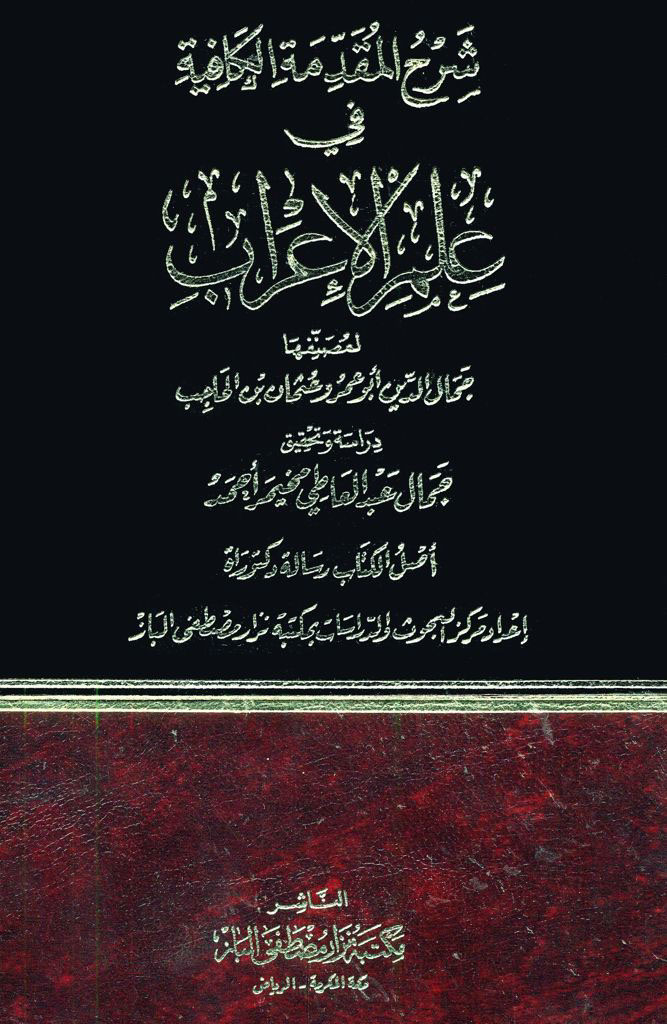 شَرْحُ المُقَدِّمَةِ الكَافِيَةِ
فِي
عِلْمِ الإِعْرَابِ
لمُصَنِّفِهَا
جَمَال الدِّين أبو عمرو عثمان بن الحاجِب
دِرَاسَة وَتحْقِيق
جَمَال عَبْد العَاطِي مخيمر أحمَدْ
أَصْلُ الكتَاب رسَالة دكتورَاة
إعْداد مركز البحوث والدّراسات بمكتبة نزار مصْطفى البَاز
النَّاشِر
مكتَبَة نِزَار مُصْطَفَى البَاز
مكة المكرمة - الرياض